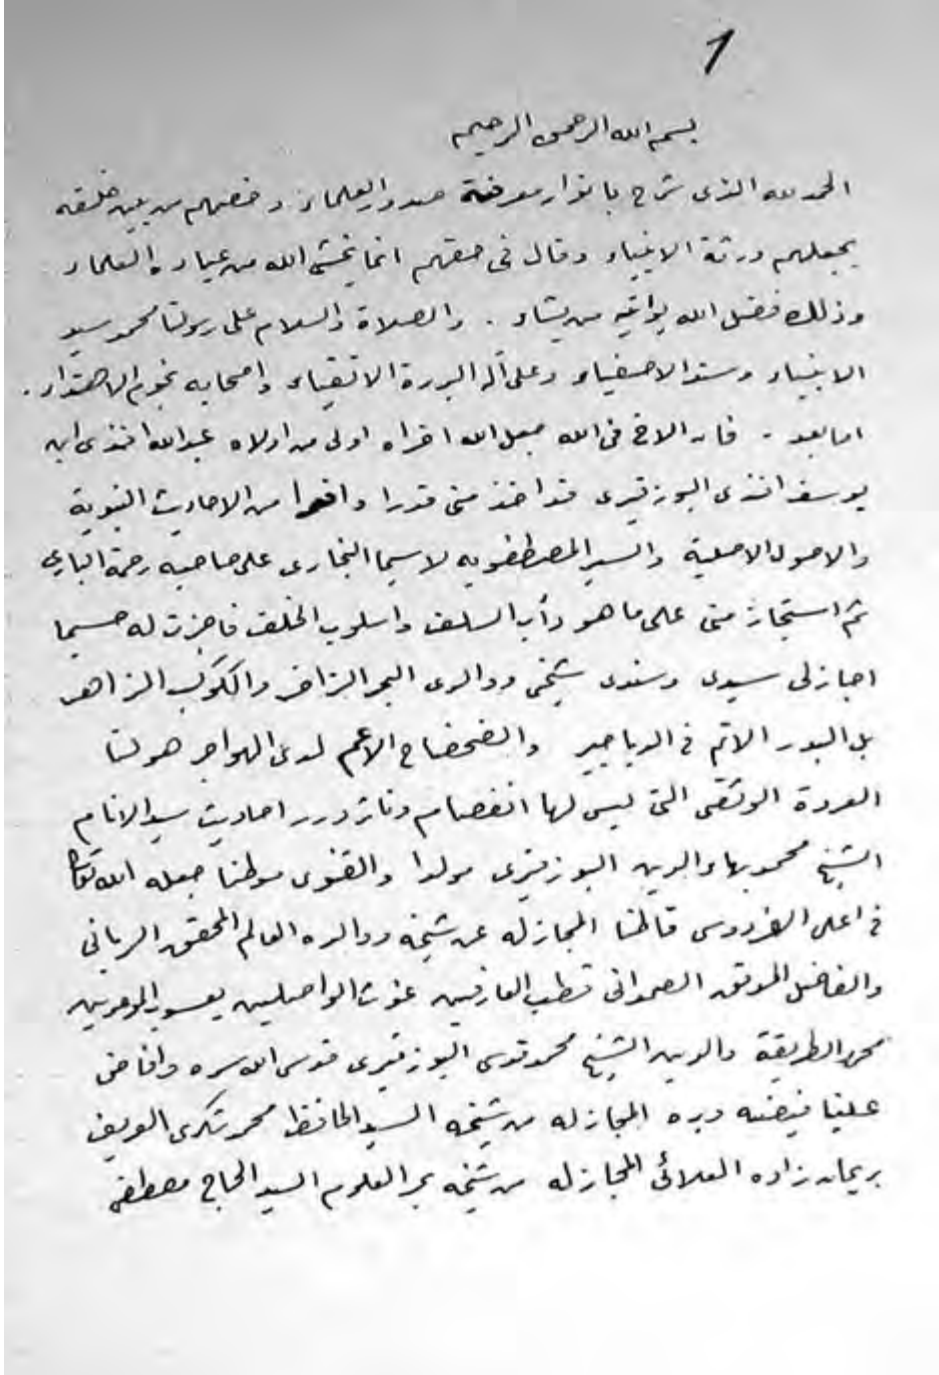 1
بسم الله الرحمن الرحيم
الحمد لله الذى شرح بانوار معرفة صدور العلماء وخصهم من بين خليقته
بجعلهم ورثة الانبياء وقال فى حقهم انما يخشى الله من عباده العلماء
وذلك فضل الله يؤتيه من يشاء . والصلاة والسلام على رسولنا محمد سيد
الانبياء وسند الاصفياء وعلى آله البررة الاتقياء واصحابه نجوم الاهتداء .
اما بعد . فان الاخ فى الله جعل الله اخراه اولى من اولاه عبدالله افندى ابن
يوسف افندى البوزقيرى قد اخذ منى قدرا وافرا من الاحاديث النبوية
والاصول الاصلية والسير المصطفويه لاسيما البخارى على صاحبه رحمة البارى
ثم استجاز منى على ما هو دأب السلف واسلوب الخلف فاجزت له حسبما
اجازلى سيدى وسندى شيخى ووالدى البحر الزاخر والكوكب الزاهر
بل البدر الاتم فى الدياجير والضحضاح الاعم لدى الهواجر هو لنا
العروة الوثقى التى ليس لها انفصام وناثر درر احاديث سيد الانام
الشيخ محمد بهاء الدين البوزقيرى مولدا والقنوى موطنا جعله الله تعالى
فى اعلى الفردوس قاطنا المجازله عن شيخه ووالده العالم المحقق الربانى
والفاضل الموفق الصمدانى قطب العارفين غوث الواصلين يعسوب الموحدين
محى الطريقة والدين الشيخ محمد قدسى البوزقيرى قدس الله سره وافاض
علينا فيضه وبره المجازله من شيخه السيد الحافظ محمد شكرى العريف
بريحان زاده العلائى المجازله من شيخه بحر العلوم السيد الحاج مصطفى